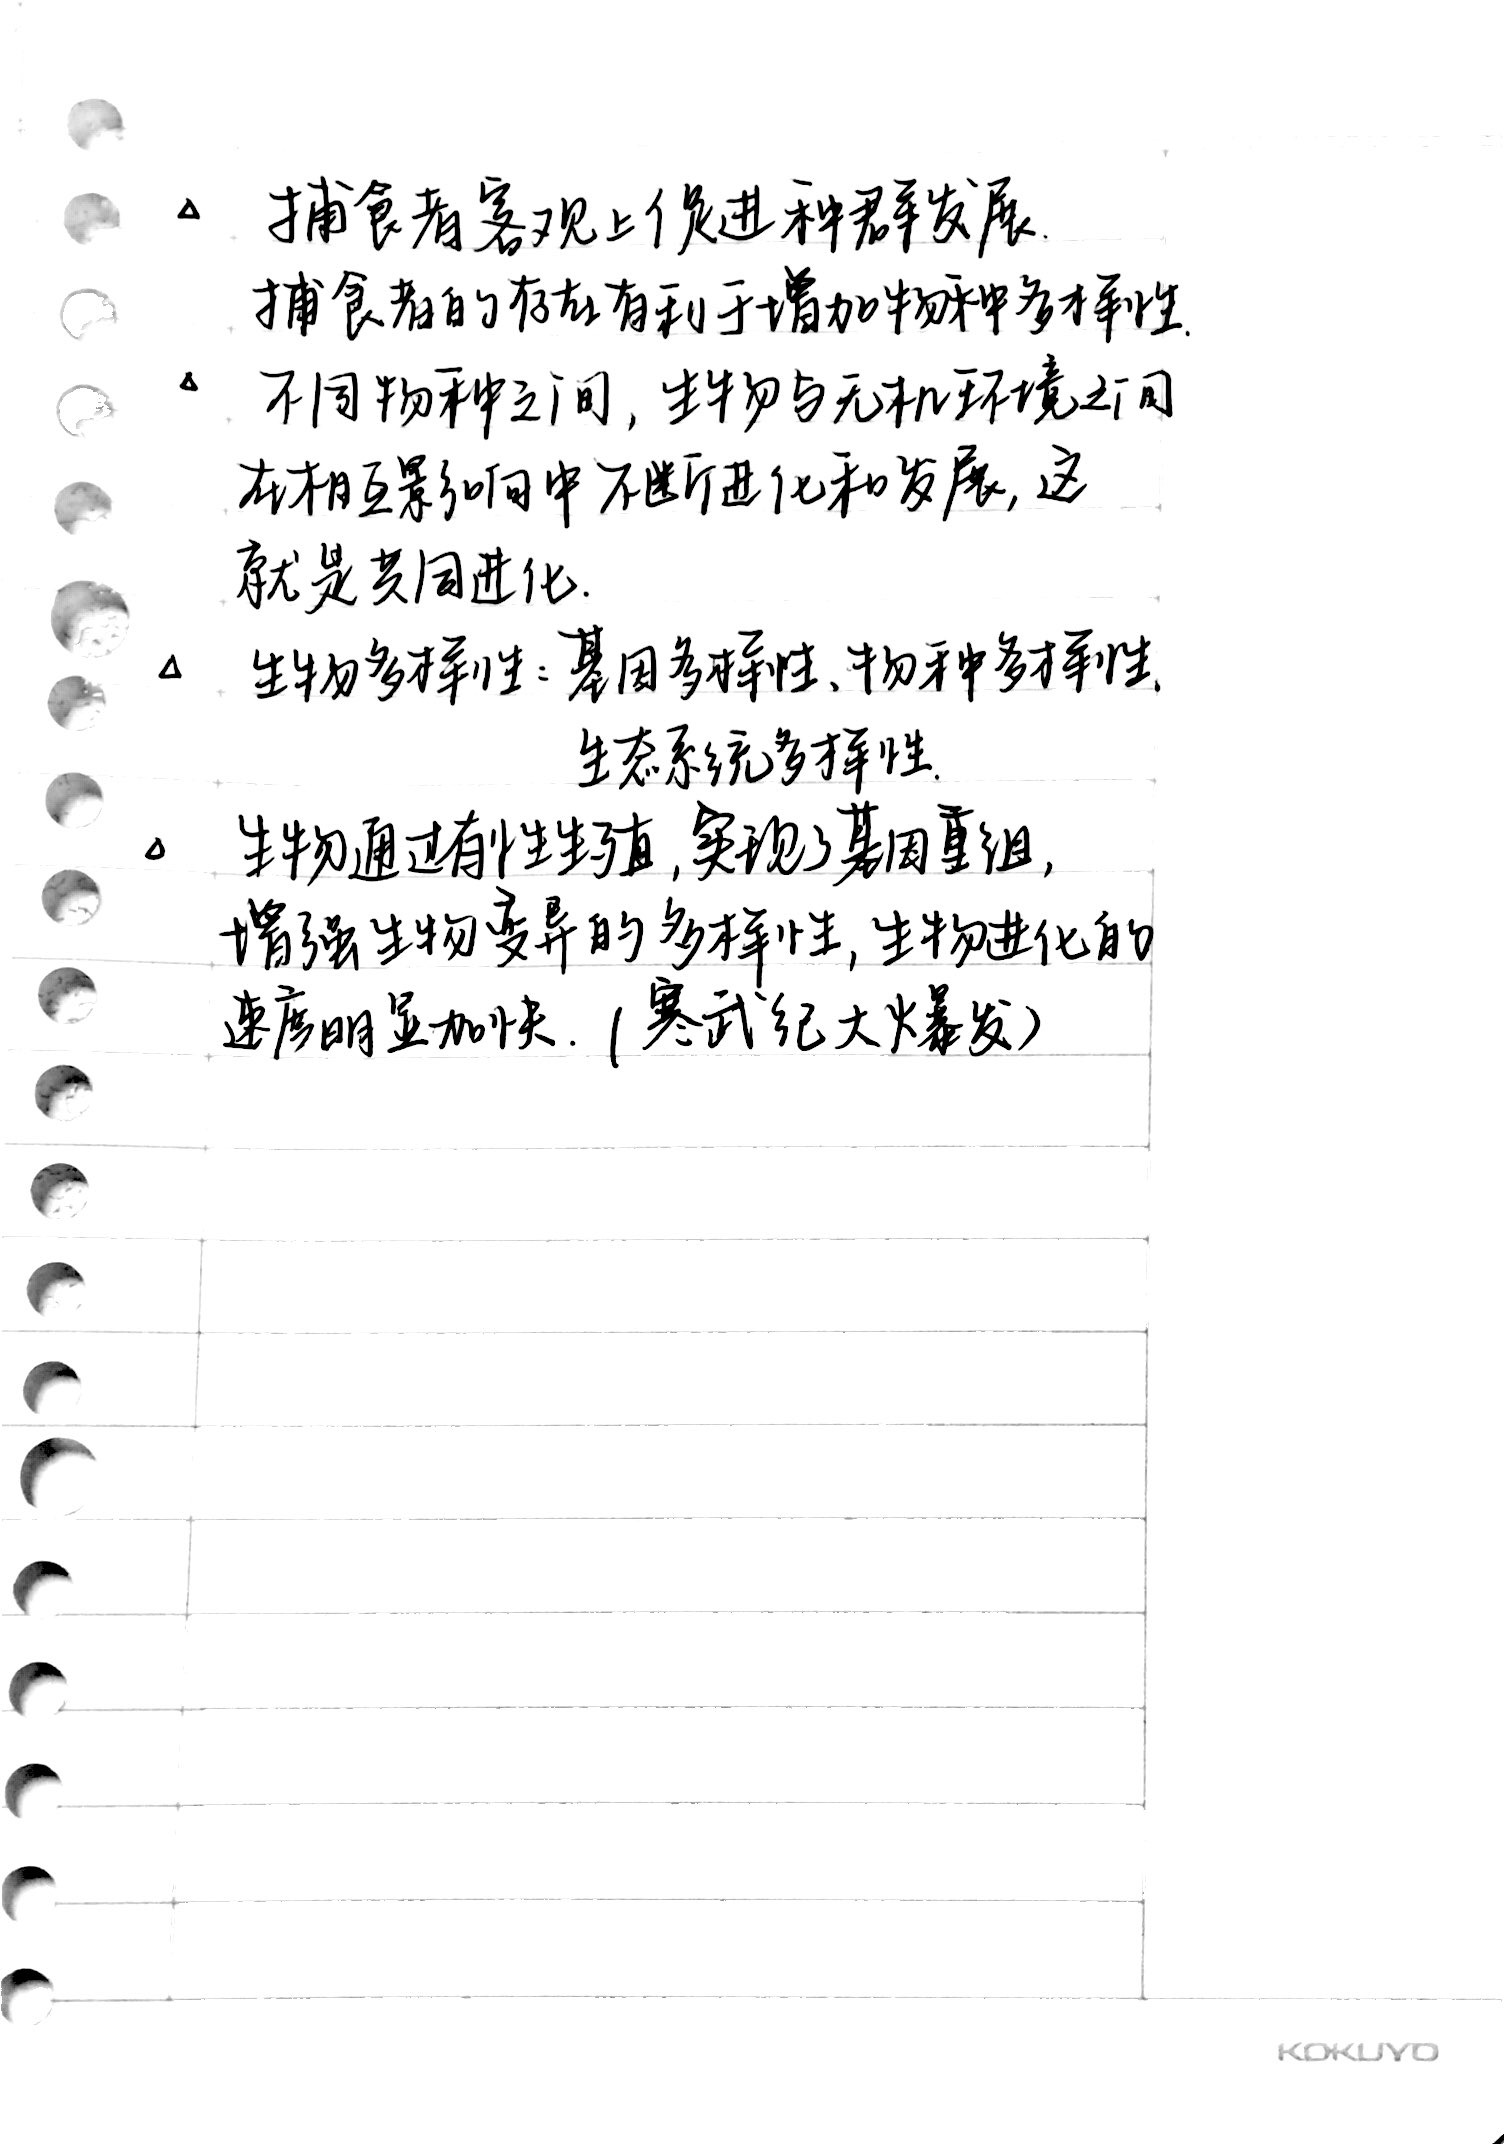 △ 捕食者客观上促进种群发展.
捕食者的存在有利于增加物种多样性.
△ 不同物种之间,生物与无机环境之间
在相互影响中不断进化和发展,这
就是共同进化.
△ 生物多样性:基因多样性、物种多样性、
生态系统多样性.
△ 生物通过有性生殖,实现了基因重组,
增强生物变异的多样性,生物进化的
速度明显加快.(寒武纪大爆发)
KOKUYO